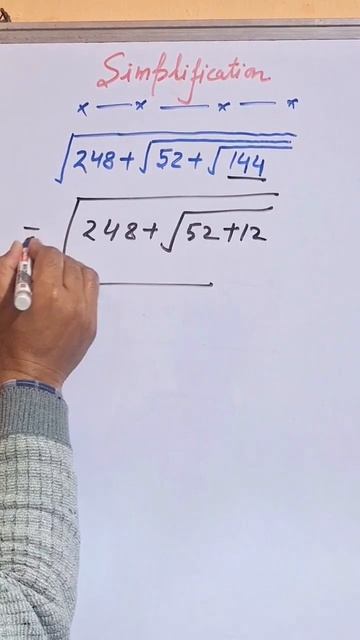 Simplification
x — x — x — x
√248+√52+√144
= √248+√52+12